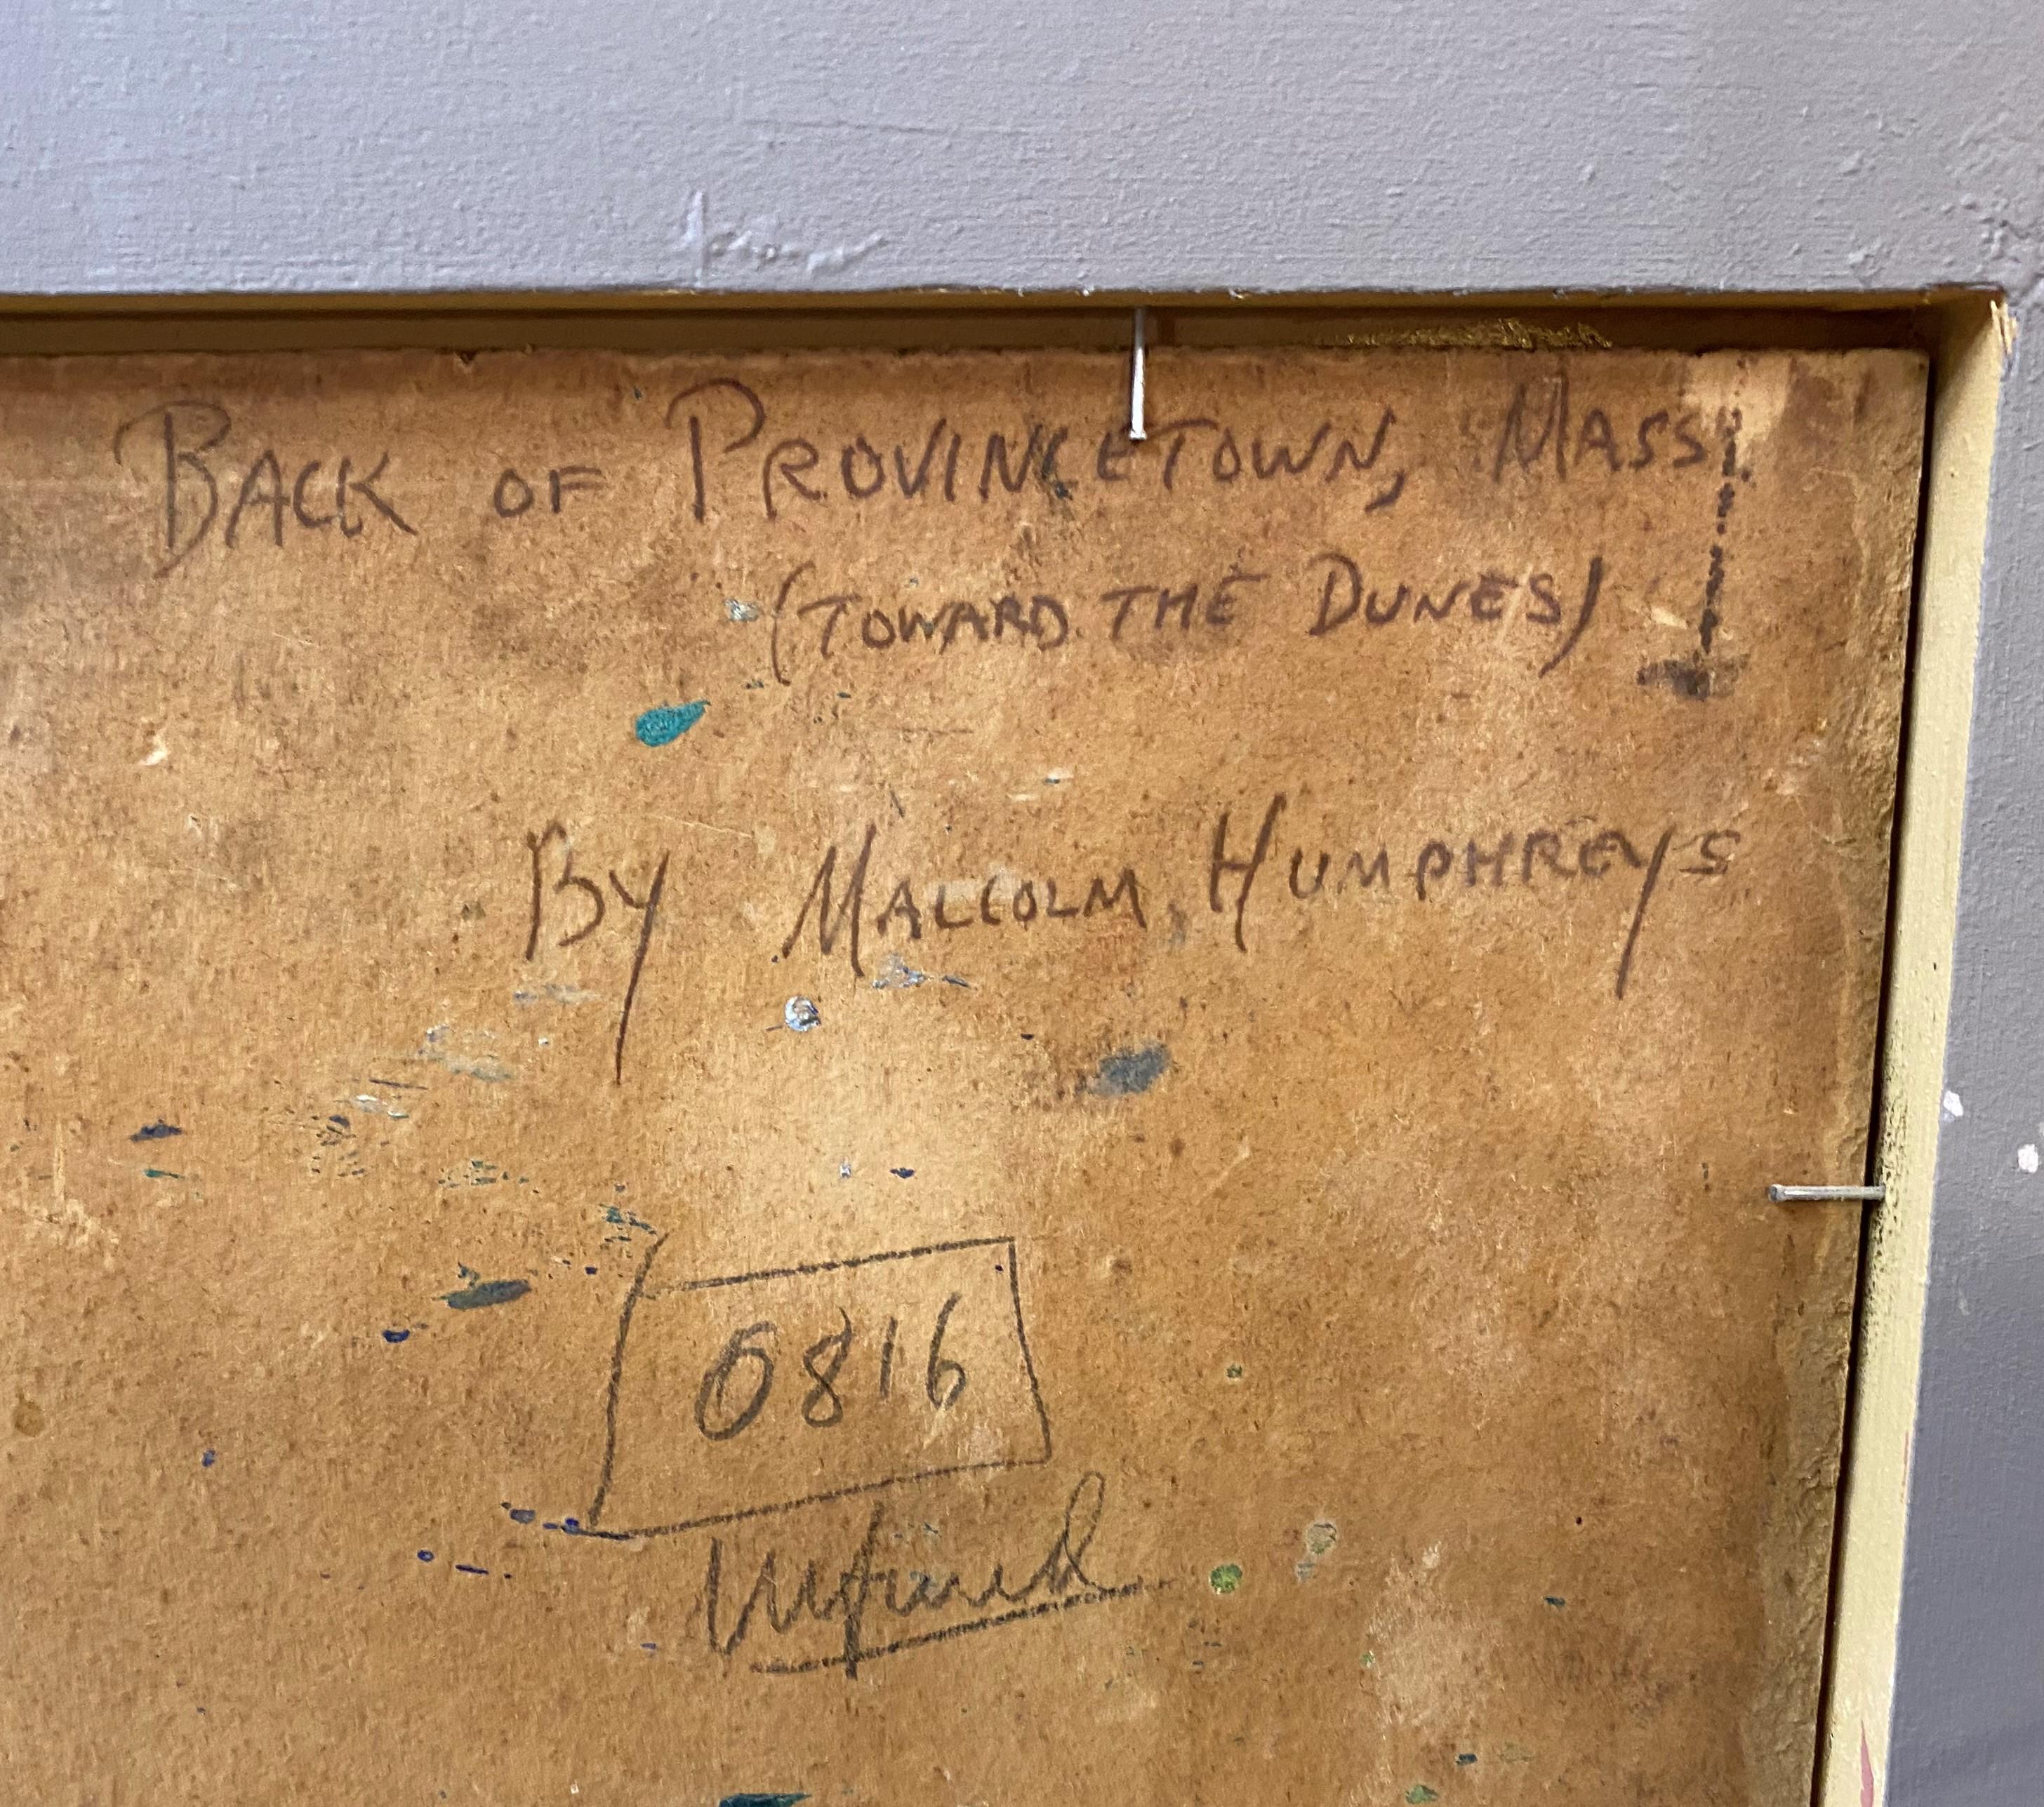 BACK OF PROVINCETOWN, MASS.
(TOWARD THE DUNES)
BY MALCOLM HUMPHREYS
0816